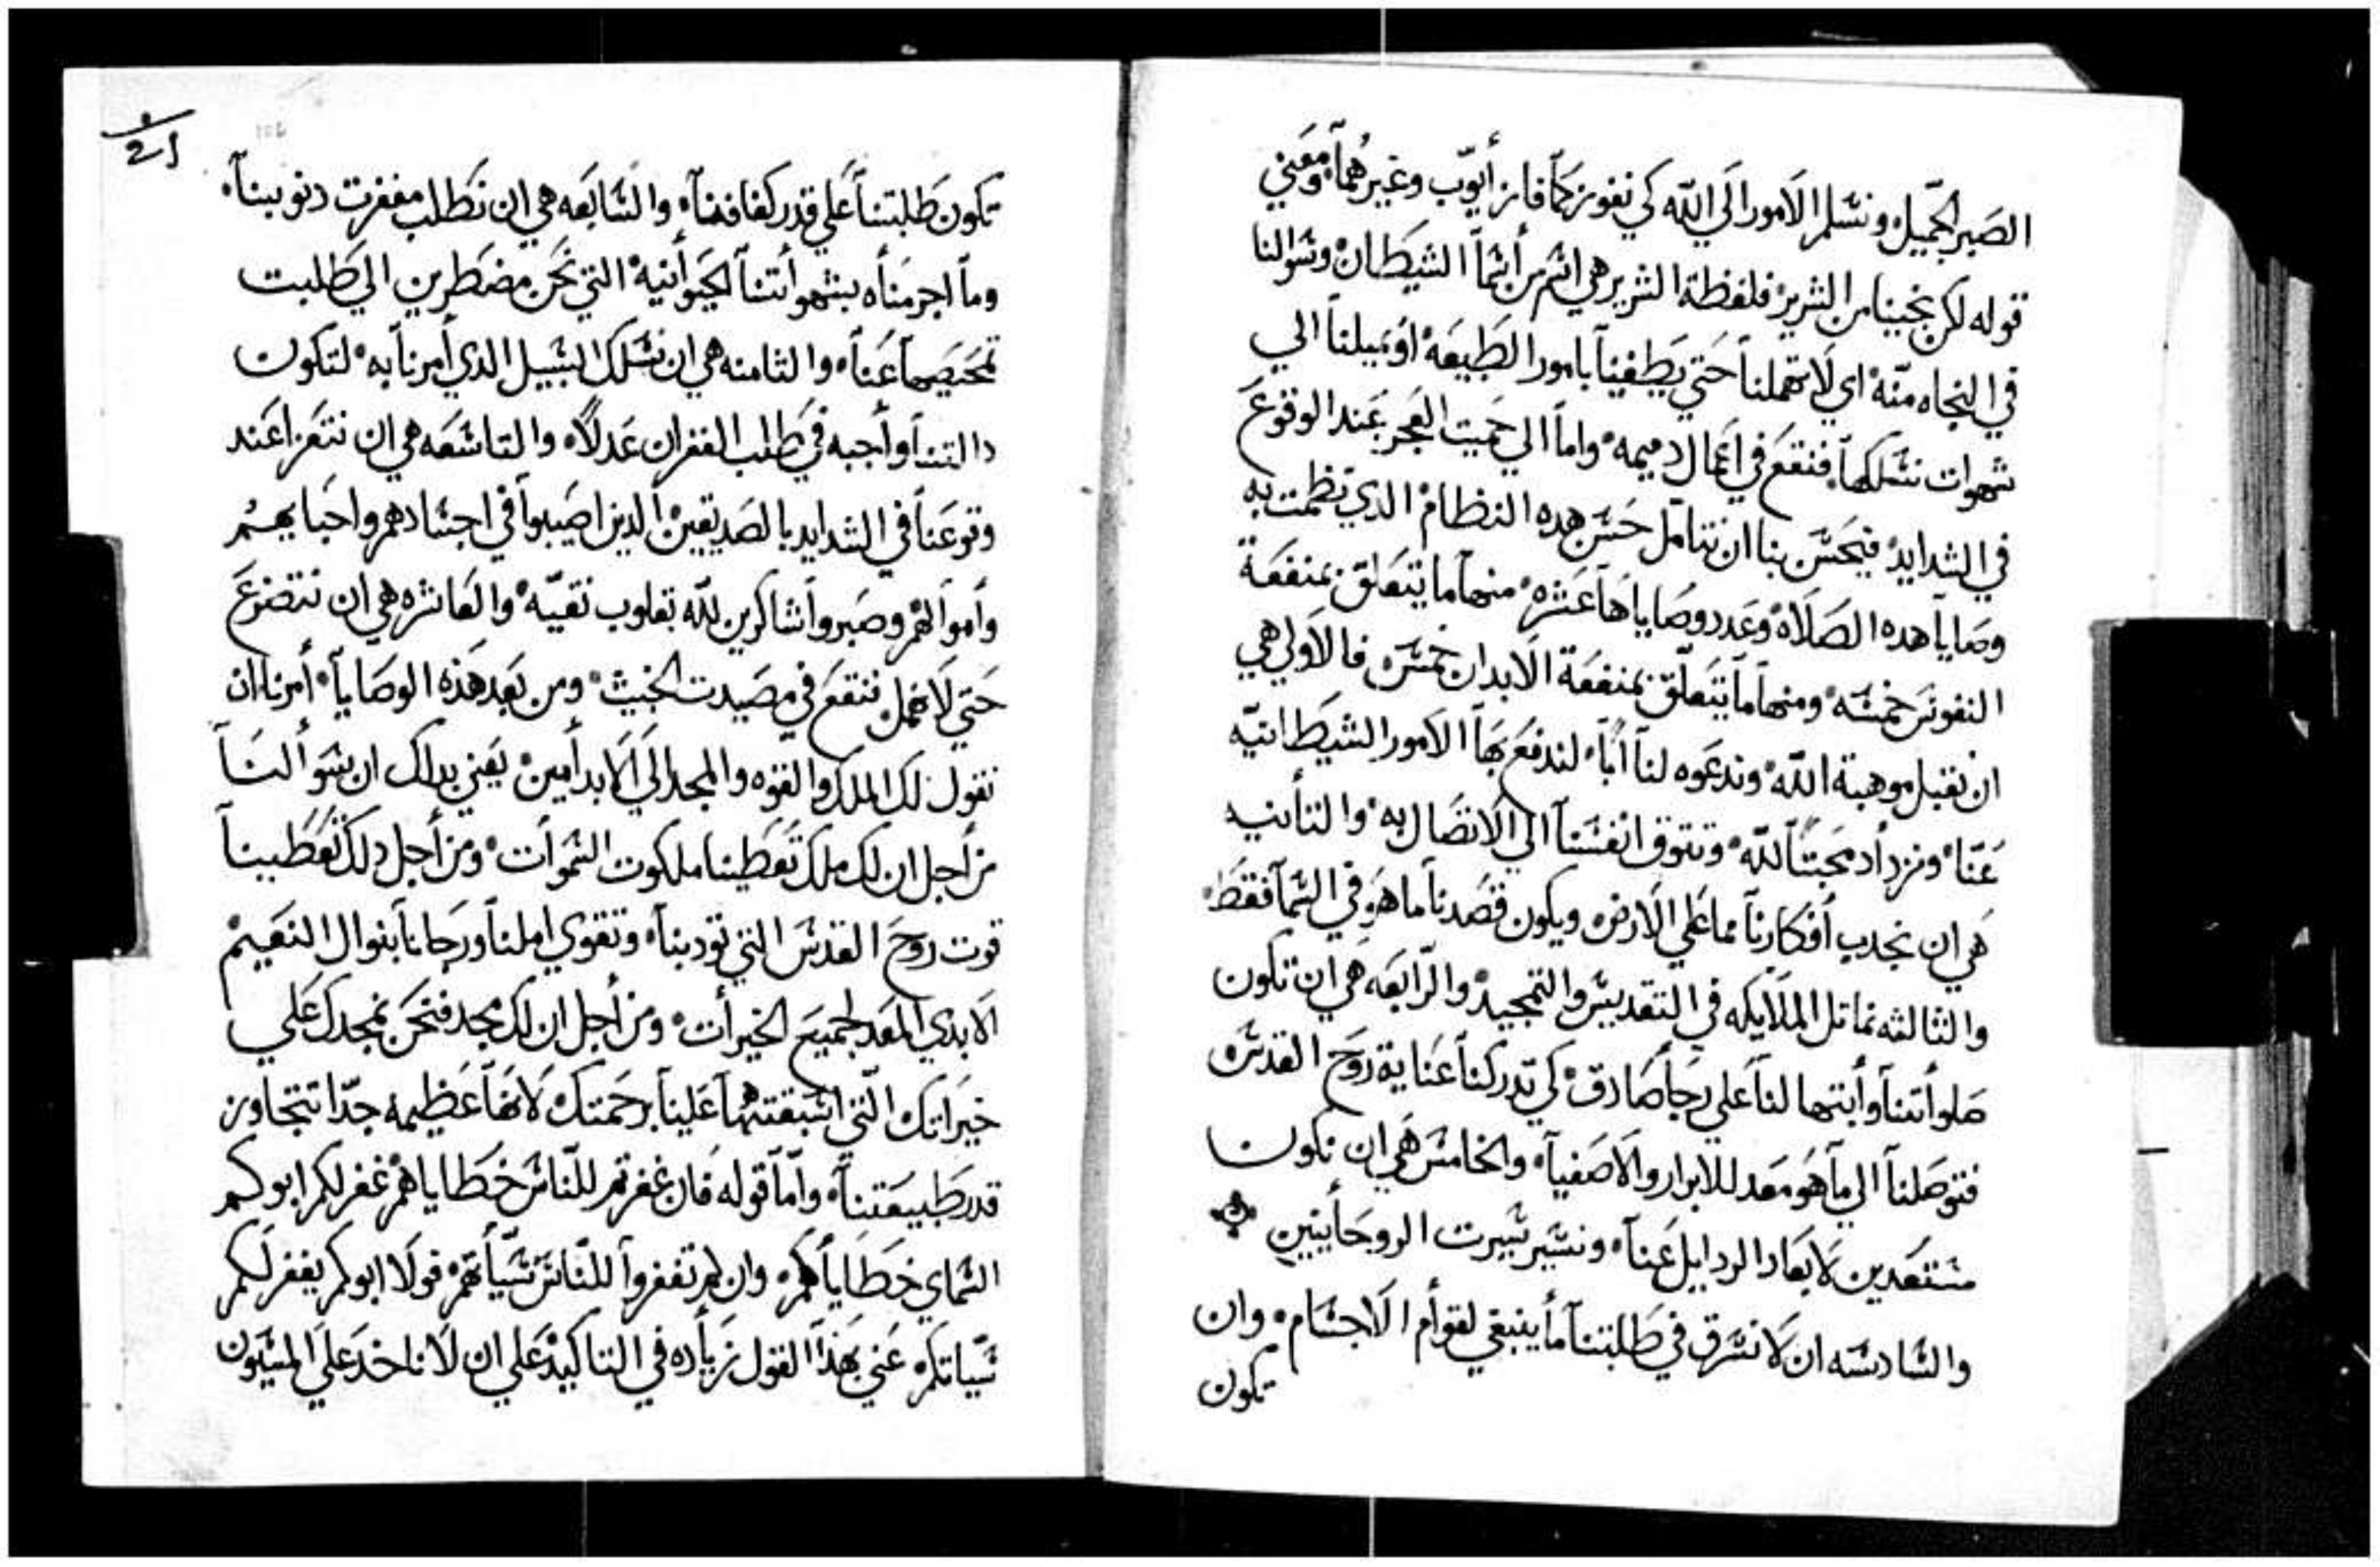 الصبر الجميل ونسلم الامور الي الله كي نفوز كما فاز أيوب وغيرهما ومعني
قوله لكن نجينا من الشرير فلفظة الشرير هي اسم من أسما الشيطان وسوالنا
في النجاه منه اي لا تهملنا حتي يطغينا بامور الطبيعه او يميلنا الي
شهوات نسلكها فنقع في اعمال دميمه واما الي حيت العجز عند الوقوع
في الشدايد فيحسن بنا ان نتامل حسن هده النظام الدي نظمت به
وصايا هده الصلاه وعدد وصاياها عشره منها ما يتعلق بمنفعة
النفوس خمسه ومنها ما يتعلق بمنفعة الابدان خمسه فالاولي هي
ان نقبل موهبة الله وندعوه لنا أبا لندفع بها الامور الشيطانيه
عنا ونزداد محبتا لله وتتوق انفسنا الي الاتصال به والتأنيه
هي ان نجدب أفكارنا مما علي الارض ويكون قصدنا ما هو في السما فقط
والثالثه نماتل الملايكه في التقديس والتمجيد والرابعه هي ان تكون
صلواتنا وأبتهالنا علي رجأ صادق كي تدركنا عناية روح القدس
فتوصلنا الي ما هو معد للابرار والاصفيا والخامس هي ان نكون
مستعدين لابعاد الردايل عنا ونسير سيرت الروحأنيين
والسادسه ان لا نسرق في طلبتنا مأ ينبغي لقوأم الاجسام وان
تكون
تكون طلبتنا علي قدر كفافنا والسابعه هي ان نطلب مغفرت دنوبنا
وما اجرمناه بشهوأتنا الحيوأنيه التي نحن مضطرين الي طلبت
تمحيصها عنا والثامنه هي ان نسلك السبيل الدي أمرنا به لتكون
دالتنا وأجبه في طلب الغفران عدلا والتاسعه هي ان نتعزا عند
وقوعنا في الشدايد بالصديقين الدين اصيبوا في اجسادهم واحبايهم
وأموالهم وصبروا شاكرين لله بقلوب نقيه والعاشره هي ان نتضرع
حتي لا نهمل فنقع في مصيدت الخبيث ومن بعد هذه الوصايا أمرنا ان
نقول لك الملك والقوه والمجد الي الابد أمين يعني بداك ان سوألنا
من أجل ان لك ملك تعطينا ملكوت السموات ومن أجل دلك تعطينا
قوت روح القدس التي تودبنا وتقوي املنا ورجانا بنوال النعيم
الابدي المعد لجميع الخيرأت ومن أجل ان لك مجد فنحن نمجدك علي
خيراتك التي اسبقتها علينا برحمتك لانها عظيمه جدا تتجاوز
قدر طبيعتنا واما قوله فان غفرتم للناس خطاياهم غفر لكم ابوكم
السماي خطاياكم وان لم تغفروا للناس سيأتهم فولا ابوكم يغفر لكم
سياتكم عني بهذا القول زيأده في التاكيد علي ان لا ناخد علي المسيون